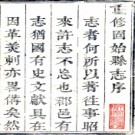 正修固始縣志序
志者何所以著往事昭
來許志不忘也郡邑有
志猶國有史文獻具存
因革美刺亦畧備矣然